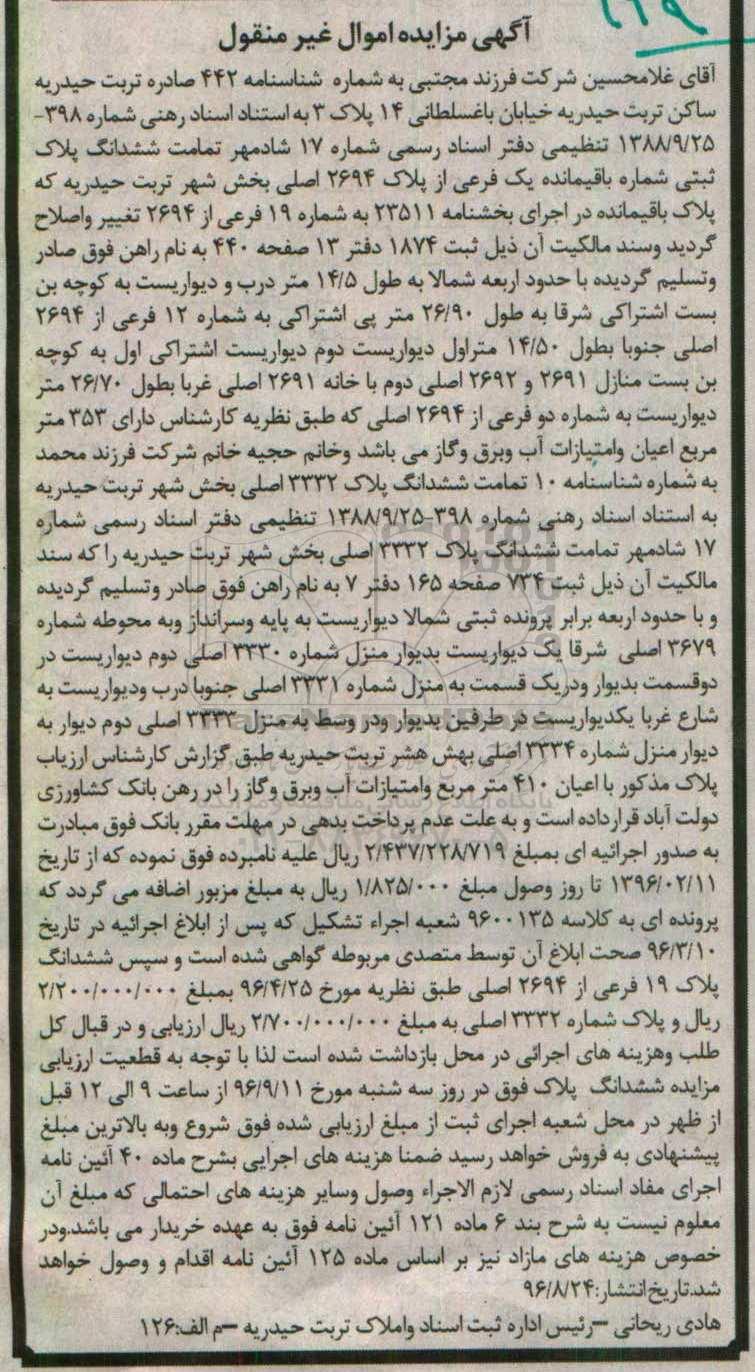 ۱۶۹
آگهی مزایده اموال غیر منقول
آقای غلامحسین شرکت فرزند مجتبی به شماره شناسنامه ۴۴۲ صادره تربت حیدریه
ساکن تربت حیدریه خیابان باغسلطانی ۱۴ پلاک ۳ به استناد اسناد رهنی شماره ۳۹۸-
۱۳۸۸/۹/۲۵ تنظیمی دفتر اسناد رسمی شماره ۱۷ شادمهر تمامت ششدانگ پلاک
ثبتی شماره باقیمانده یک فرعی از پلاک ۲۶۹۴ اصلی بخش شهر تربت حیدریه که
پلاک باقیمانده در اجرای بخشنامه ۲۳۵۱۱ به شماره ۱۹ فرعی از ۲۶۹۴ تغییر واصلاح
گردید وسند مالکیت آن ذیل ثبت ۱۸۷۴ دفتر ۱۳ صفحه ۴۴۰ به نام راهن فوق صادر
وتسلیم گردیده با حدود اربعه شمالا به طول ۱۴/۵ متر درب و دیواریست به کوچه بن
بست اشتراکی شرقا به طول ۲۶/۹۰ متر پی اشتراکی به شماره ۱۲ فرعی از ۲۶۹۴
اصلی جنوبا بطول ۱۴/۵۰ متراول دیواریست دوم دیواریست اشتراکی اول به کوچه
بن بست منازل ۲۶۹۱ و ۲۶۹۲ اصلی دوم با خانه ۲۶۹۱ اصلی غربا بطول ۲۶/۷۰ متر
دیواریست به شماره دو فرعی از ۲۶۹۴ اصلی که طبق نظریه کارشناس دارای ۳۵۳ متر
مربع اعیان وامتیازات آب وبرق وگاز می باشد وخانم حجیه خانم شرکت فرزند محمد
به شماره شناسنامه ۱۰ تمامت ششدانگ پلاک ۳۳۳۲ اصلی بخش شهر تربت حیدریه
به استناد اسناد رهنی شماره ۳۹۸-۱۳۸۸/۹/۲۵ تنظیمی دفتر اسناد رسمی شماره
۱۷ شادمهر تمامت ششدانگ پلاک ۳۳۳۲ اصلی بخش شهر تربت حیدریه را که سند
مالکیت آن ذیل ثبت ۷۳۴ صفحه ۱۶۵ دفتر ۷ به نام راهن فوق صادر وتسلیم گردیده
و با حدود اربعه برابر پرونده ثبتی شمالا دیواریست به پایه وسرانداز وبه محوطه شماره
۳۶۷۹ اصلی شرقا یک دیواریست بدیوار منزل شماره ۳۳۳۰ اصلی دوم دیواریست در
دوقسمت بدیوار ودریک قسمت به منزل شماره ۳۳۳۱ اصلی جنوبا درب ودیواریست به
شارع غربا یکدیواریست در طرفین بدیوار ودر وسط به منزل ۳۳۳۳ اصلی دوم دیوار به
دیوار منزل شماره ۳۳۳۴ اصلی بهش هشر تربت حیدریه طبق گزارش کارشناس ارزیاب
پلاک مذکور با اعیان ۴۱۰ متر مربع وامتیازات آب وبرق وگاز را در رهن بانک کشاورزی
دولت آباد قرارداده است و به علت عدم پرداخت بدهی در مهلت مقرر بانک فوق مبادرت
به صدور اجرائیه ای بمبلغ ۲/۴۳۷/۲۲۸/۷۱۹ ریال علیه نامبرده فوق نموده که از تاریخ
۱۳۹۶/۰۲/۱۱ تا روز وصول مبلغ ۱/۸۲۵/۰۰۰ ریال به مبلغ مزبور اضافه می گردد که
پرونده ای به کلاسه ۹۶۰۰۱۳۵ شعبه اجراء تشکیل که پس از ابلاغ اجرائیه در تاریخ
۹۶/۳/۱۰ صحت ابلاغ آن توسط متصدی مربوطه گواهی شده است و سپس ششدانگ
پلاک ۱۹ فرعی از ۲۶۹۴ اصلی طبق نظریه مورخ ۹۶/۴/۲۵ بمبلغ ۲/۲۰۰/۰۰۰/۰۰۰
ریال و پلاک شماره ۳۳۳۲ اصلی به مبلغ ۲/۷۰۰/۰۰۰/۰۰۰ ریال ارزیابی و در قبال کل
طلب وهزینه های اجرائی در محل بازداشت شده است لذا با توجه به قطعیت ارزیابی
مزایده ششدانگ پلاک فوق در روز سه شنبه مورخ ۹۶/۹/۱۱ از ساعت ۹ الی ۱۲ قبل
از ظهر در محل شعبه اجرای ثبت از مبلغ ارزیابی شده فوق شروع وبه بالاترین مبلغ
پیشنهادی به فروش خواهد رسید ضمنا هزینه های اجرایی بشرح ماده ۴۰ آئین نامه
اجرای مفاد اسناد رسمی لازم الاجراء وصول وسایر هزینه های احتمالی که مبلغ آن
معلوم نیست به شرح بند ۶ ماده ۱۲۱ آئین نامه فوق به عهده خریدار می باشد.ودر
خصوص هزینه های مازاد نیز بر اساس ماده ۱۲۵ آئین نامه اقدام و وصول خواهد
شد.تاریخ انتشار:۹۶/۸/۲۴
هادی ریحانی -رئیس اداره ثبت اسناد واملاک تربت حیدریه -م الف:۱۲۶